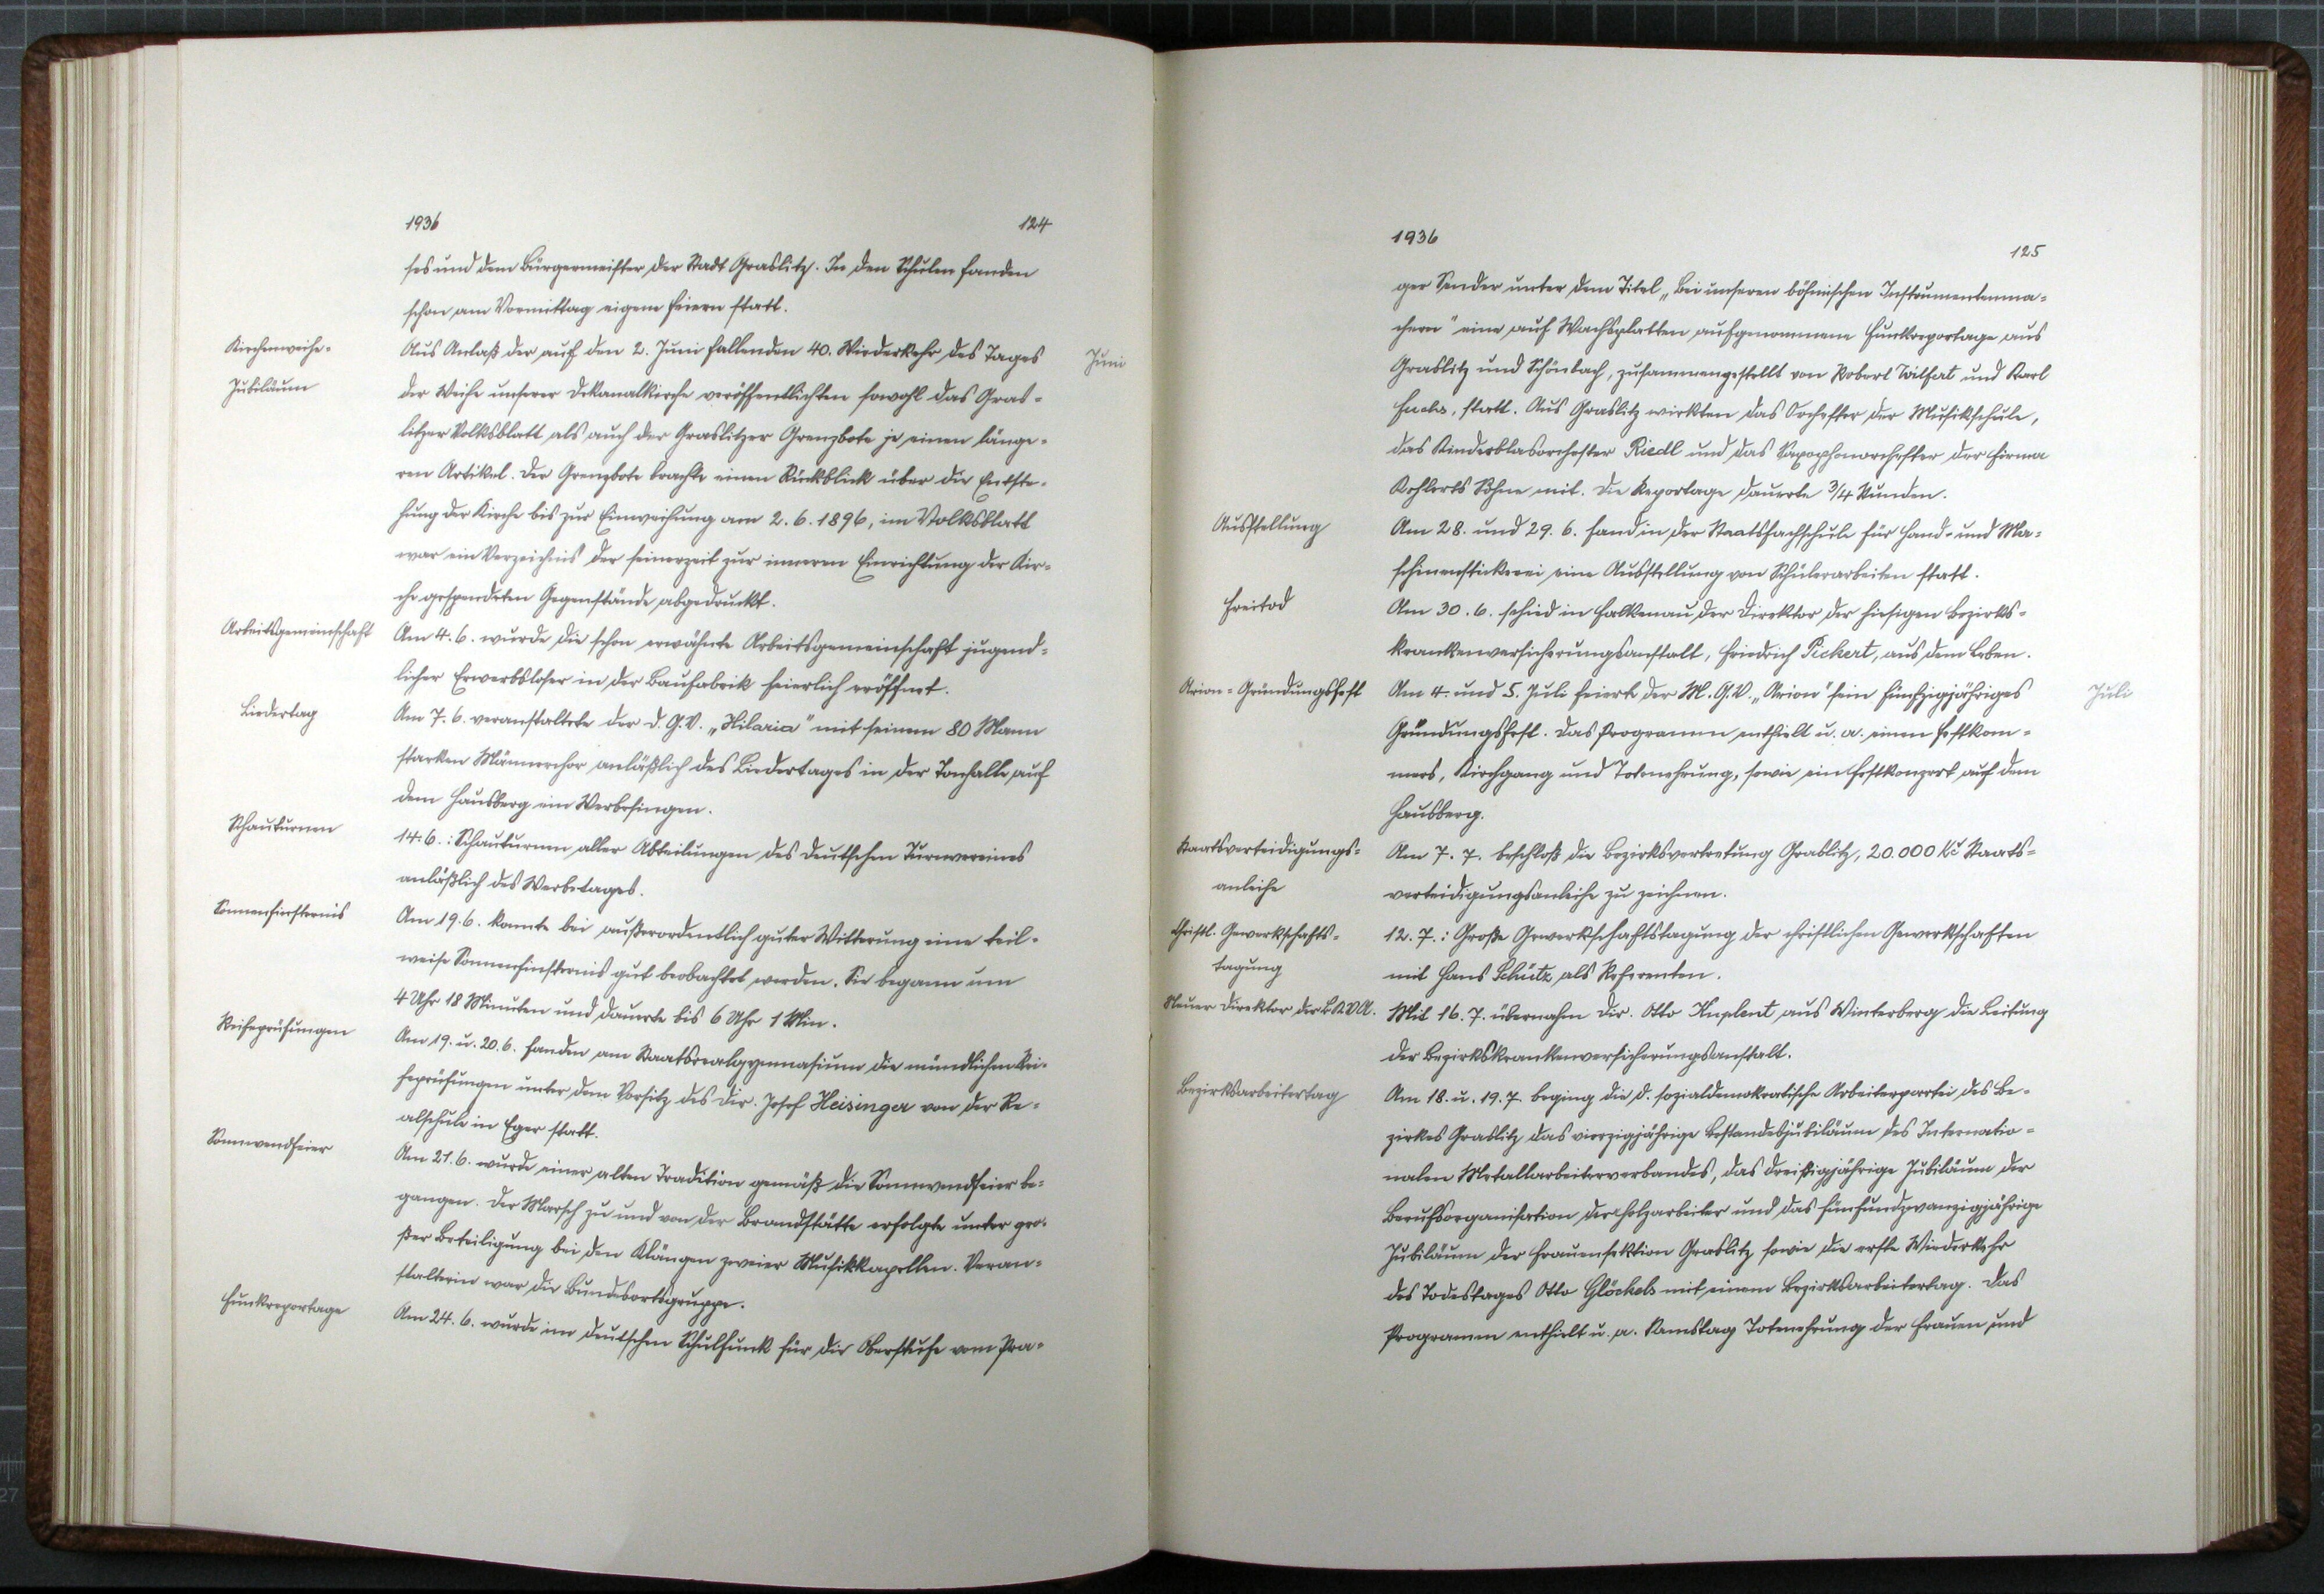 1936
124
ses und dem Bürgermeister der Stadt Graslitz. In den Schulen fanden
schon am Vormittag eigene Feiern statt.
Kirchenweihe-
Jubiläum
Juni
Aus Anlaß der auf den 2. Juni fallenden 40. Wiederkehr des Tages
der Weihe unserer Dekanalkirche veröffentlichten sowohl das Gras-
litzer Volksblatt als auch der Graslitzer Grenzbote je einen länge-
ren Artikel. Der Grenzbote brachte einen Rückblick über die Entste-
hung der Kirche bis zur Einweihung am 2.6.1896, im Volksblatt
war ein Verzeichnis der seinerzeit zur inneren Einrichtung der Kir-
che gespendeten Gegenstände abgedruckt.
Arbeitsgemeinschaft
Am 4.6. wurde die schon erwähnte Arbeitsgemeinschaft jugend-
licher Erwerbsloser in der Baufabrik feierlich eröffnet.
Liedertag
Am 7.6. veranstaltete der D.G.V. „Hilaria" mit seinem 80 Mann
starken Männerchor anläßlich des Liedertages in der Tonhalle auf
dem Hausberg ein Werbesingen.
Schauturnen
14.6.: Schauturnen aller Abteilungen des Deutschen Turnvereines
anläßlich des Werbetages.
Sonnenfinsternis
Am 19.6. konnte bei außerordentlich guter Witterung eine teil-
weise Sonnenfinsternis gut beobachtet werden. Sie begann um
4 Uhr 18 Minuten und dauerte bis 6 Uhr 1 Min.
Reifeprüfungen
Am 19. u. 20.6. fanden am Staatsrealgymnasium die mündlichen Rei-
feprüfungen unter dem Vorsitz des Dir. Josef Heisinger von der Re-
alschule in Eger statt.
Sonnwendfeier
Am 21.6. wurde einer alten Tradition gemäß die Sonnwendfeier be-
gangen. Der Marsch zu und von der Brandstätte erfolgte unter gro-
ßer Beteiligung bei den Klängen zweier Musikkapellen. Veran-
stalterin war die Bundesortsgruppe.
Funkreportage
Am 24.6. wurde im deutschen Schulfunk für die Oberstufe vom Pra-
1936
125
ger Sender unter dem Titel „Bei unseren böhmischen Instrumentenma-
chern" eine auf Wachsplatten aufgenommene Funkreportage aus
Graslitz und Schönbach, zusammengestellt von Robert Wilfert und Karl
Fuchs, statt. Aus Graslitz wirkten das Orchester der Musikschule,
das Kinderblasorchester Riedl und das Saxophonorchester der Firma
Kohlerts Söhne mit. Die Reportage dauerte 3/4 Stunden.
Ausstellung
Am 28. und 29.6. fand in der Staatsfachschule für Hand- und Ma-
schinenstickerei eine Ausstellung von Schülerarbeiten statt.
Freitod
Am 30.6. schied in Falkenau der Direktor der hiesigen Bezirks-
krankenversicherungsanstalt, Friedrich Pickert, aus dem Leben.
Arion-Gründungsfest
Juli
Am 4. und 5. Juli feierte der M.G.V. „Arion" sein fünfzigjähriges
Gründungsfest. Das Programm enthielt u.a. einen Festkom-
mers, Kirchgang und Totenehrung, sowie ein Festkonzert auf dem
Hausberg.
Staatsverteidigungs-
anleihe
Am 7.7. beschloß die Bezirksvertretung Graslitz, 20.000 Kč Staats-
verteidigungsanleihe zu zeichnen.
Christl. Gewerkschafts-
tagung
12.7.: Große Gewerkschaftstagung der christlichen Gewerkschaften
mit Hans Schütz als Referenten.
Neuer Direktor der B.K.V.A.
Mit 16.7. übernahm Dir. Otto Knplent aus Winterberg die Leitung
der Bezirkskrankenversicherungsanstalt.
Bezirksarbeitertag
Am 18. u. 19.7. beging die d. sozialdemokratische Arbeiterpartei des Be-
zirkes Graslitz das vierzigjährige Bestandesjubiläum des Internatio-
nalen Metallarbeiterverbandes, das dreißigjährige Jubiläum der
Berufsorganisation der Holzarbeiter und das fünfundzwanzigjährige
Jubiläum der Frauensektion Graslitz sowie die erste Wiederkehr
des Todestages Otto Glöckels mit einem Bezirksarbeitertag. Das
Programm enthielt u.a. Samstag Totenehrung der Frauen und